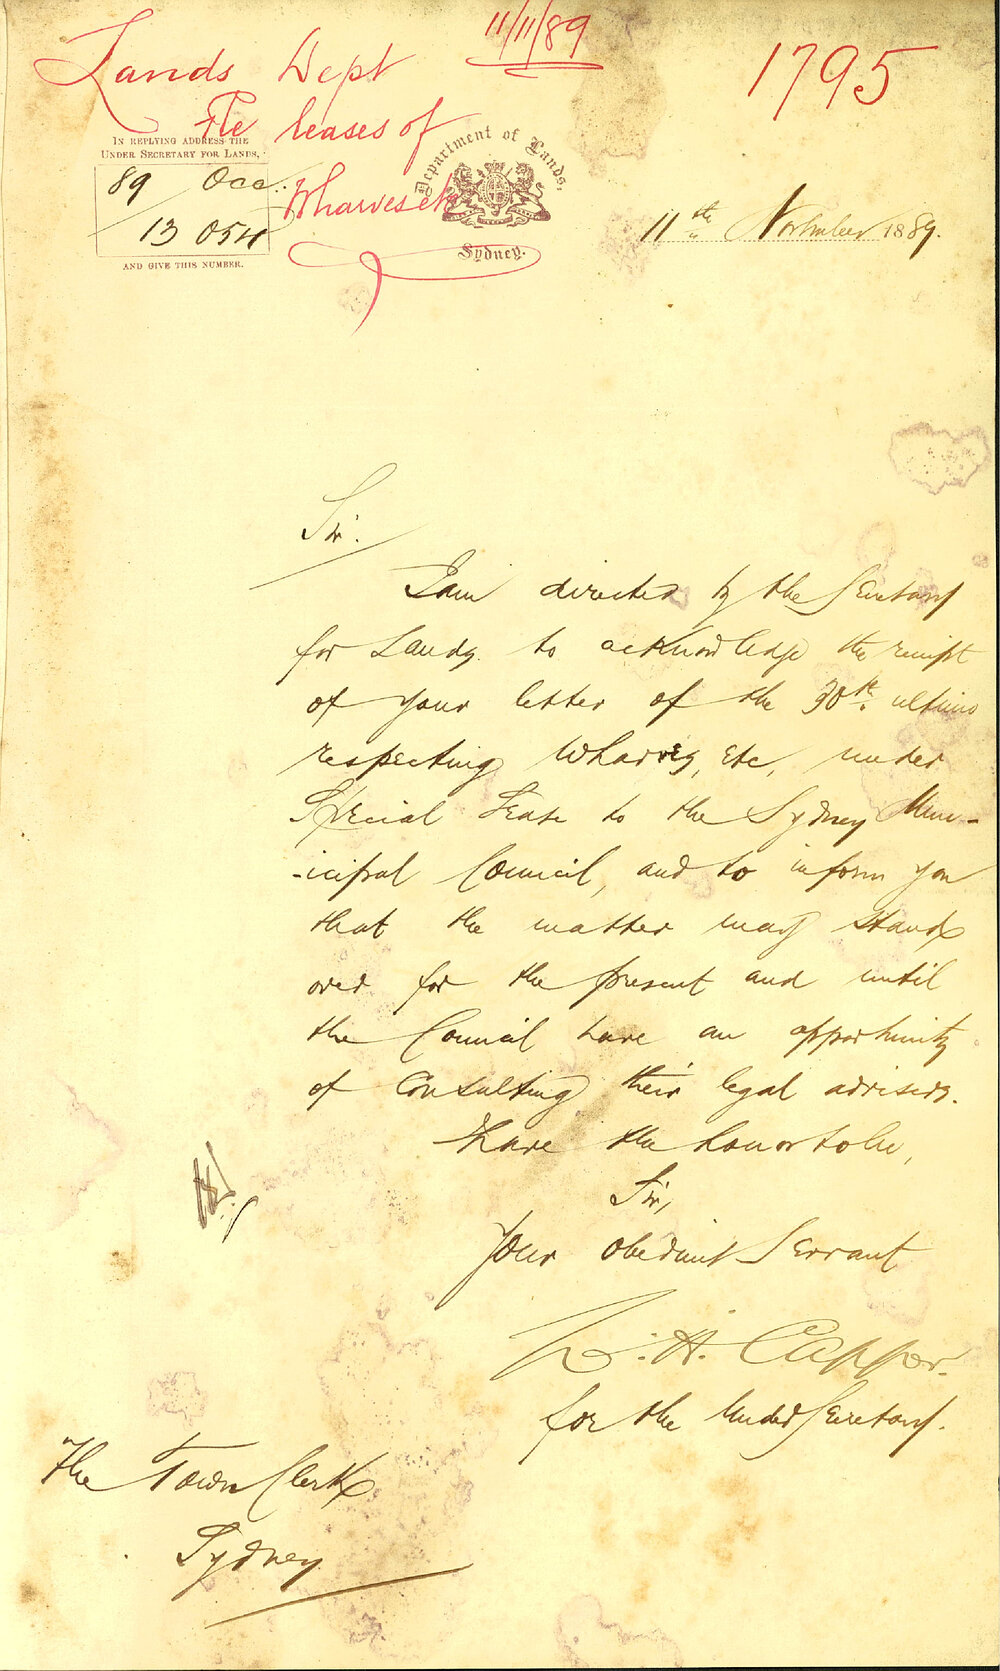 11/11/89
Lands Dept
1795
Re leases of
Wharves etc
IN REPLYING ADDRESS THE
UNDER SECRETARY FOR LANDS,
89 Occ.
13 054
AND GIVE THIS NUMBER.
Department of Lands,
Sydney.
11th November 1889.
Sir.
I am directed by the Secretary
for Lands to acknowledge the receipt
of your letter of the 30th ultimo
respecting Wharves, etc, under
Special Lease to the Sydney Mun-
-icipal Council, and to inform you
that the matter may stand
over for the present and until
the Council have an opportunity
of consulting their legal advisers.
I have the honor to be,
Sir,
Your obedient Servant
H. Capper.
for the Under Secretary.
The Town Clerk
Sydney